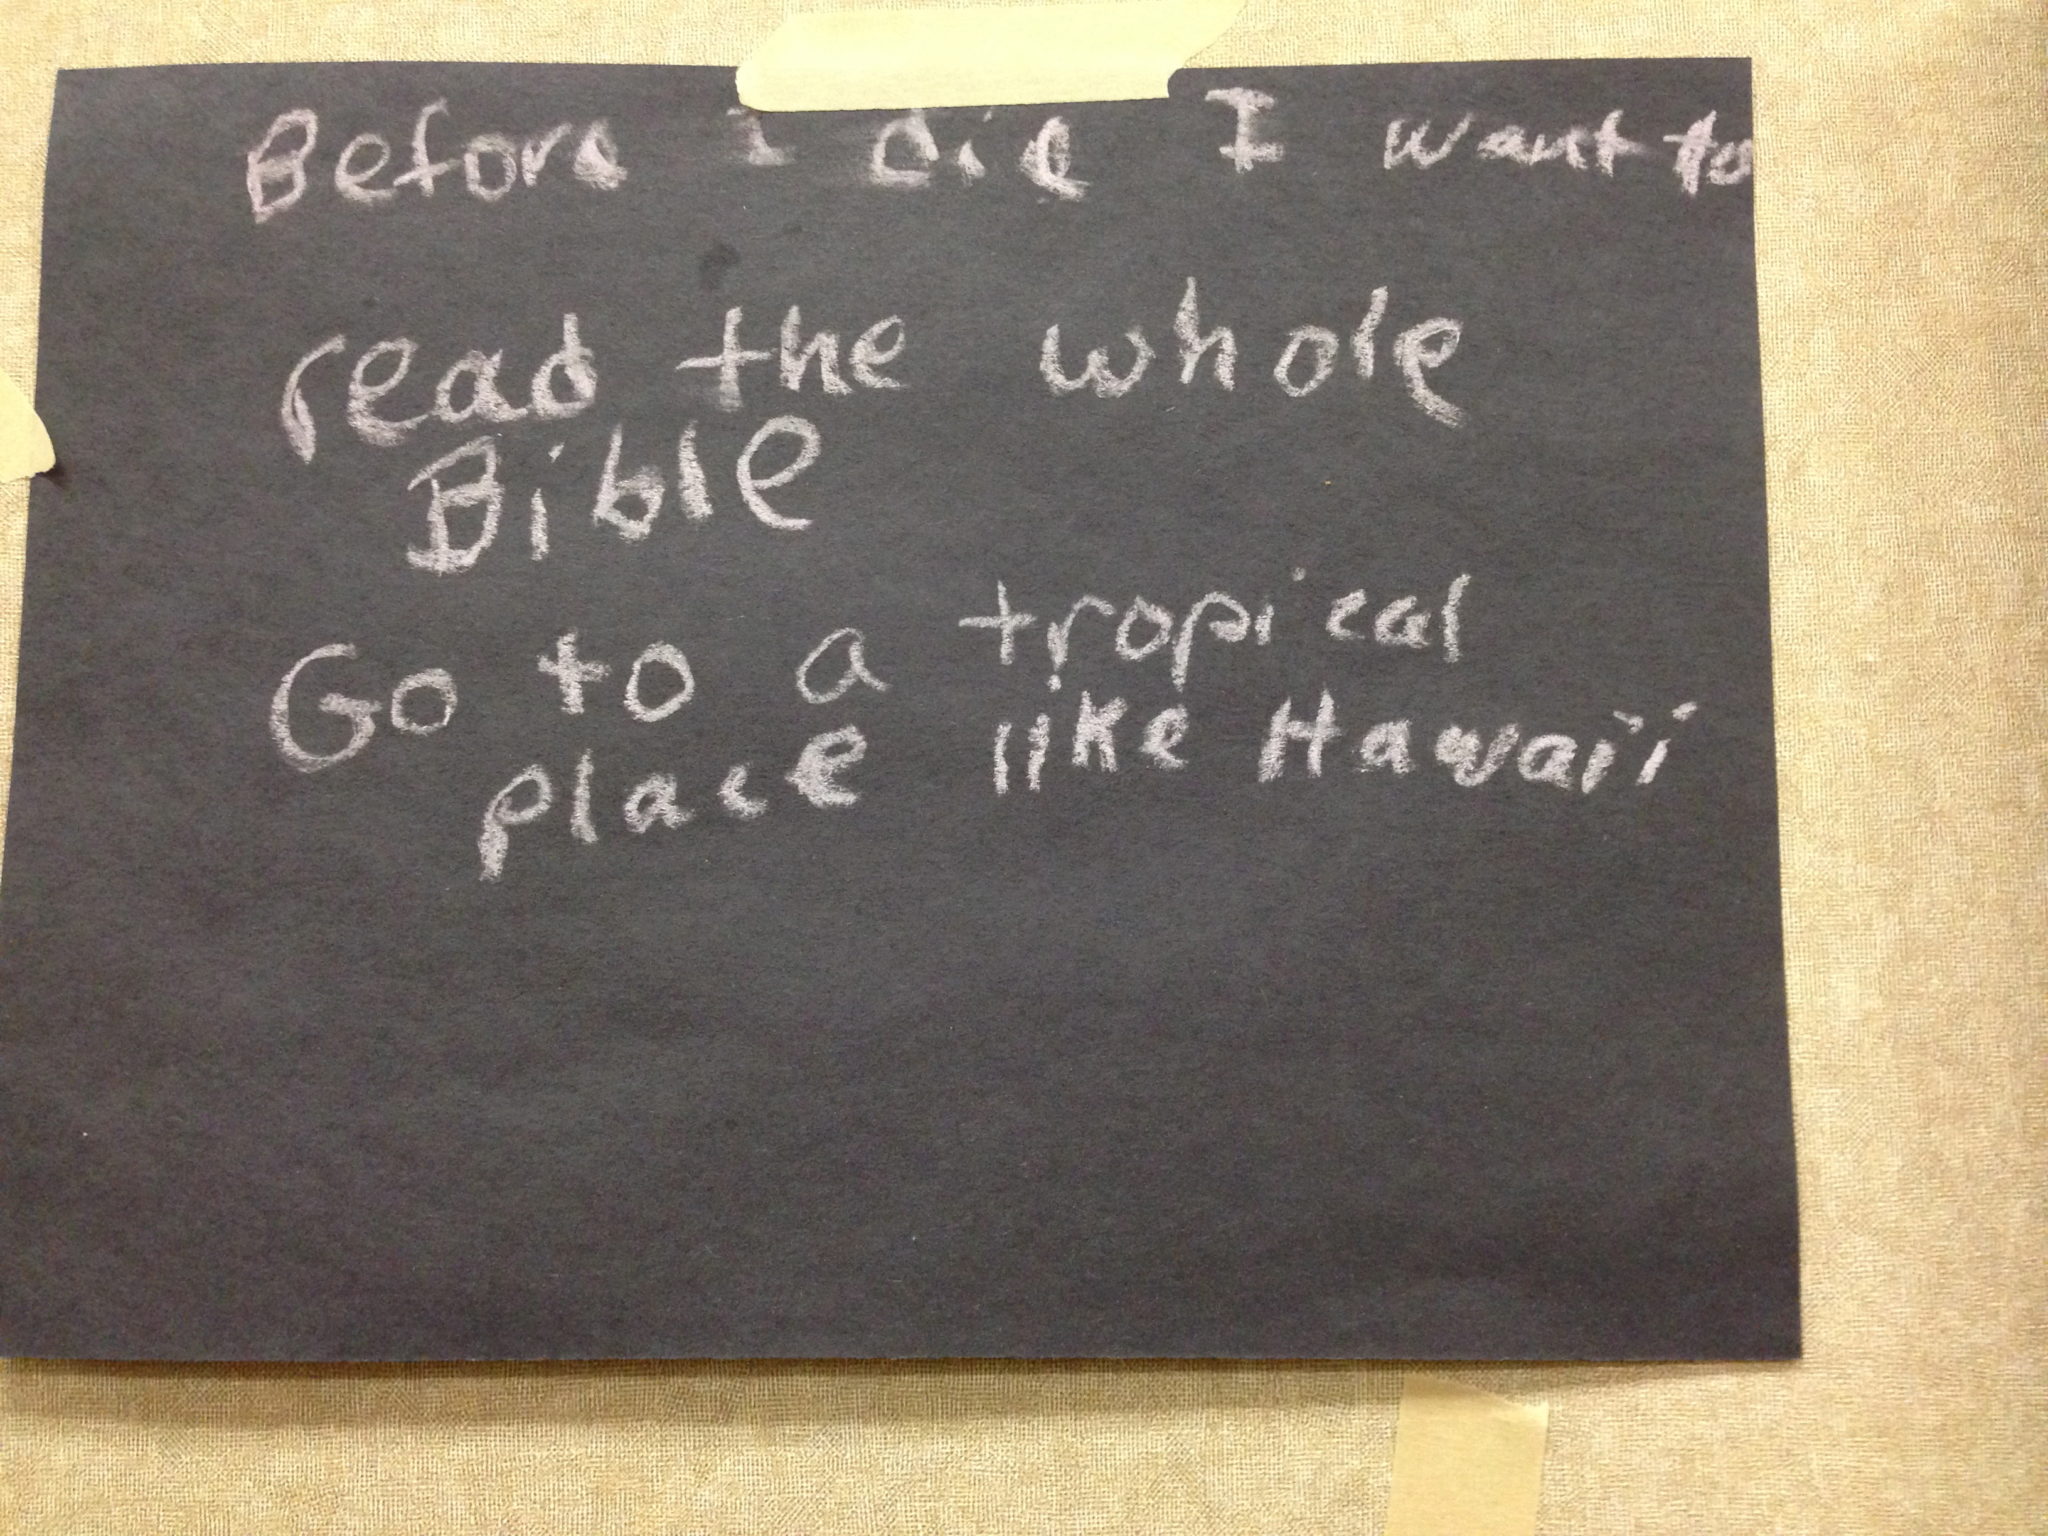 Before I die I want to
read the whole
Bible
Go to a tropical
place like Hawaii